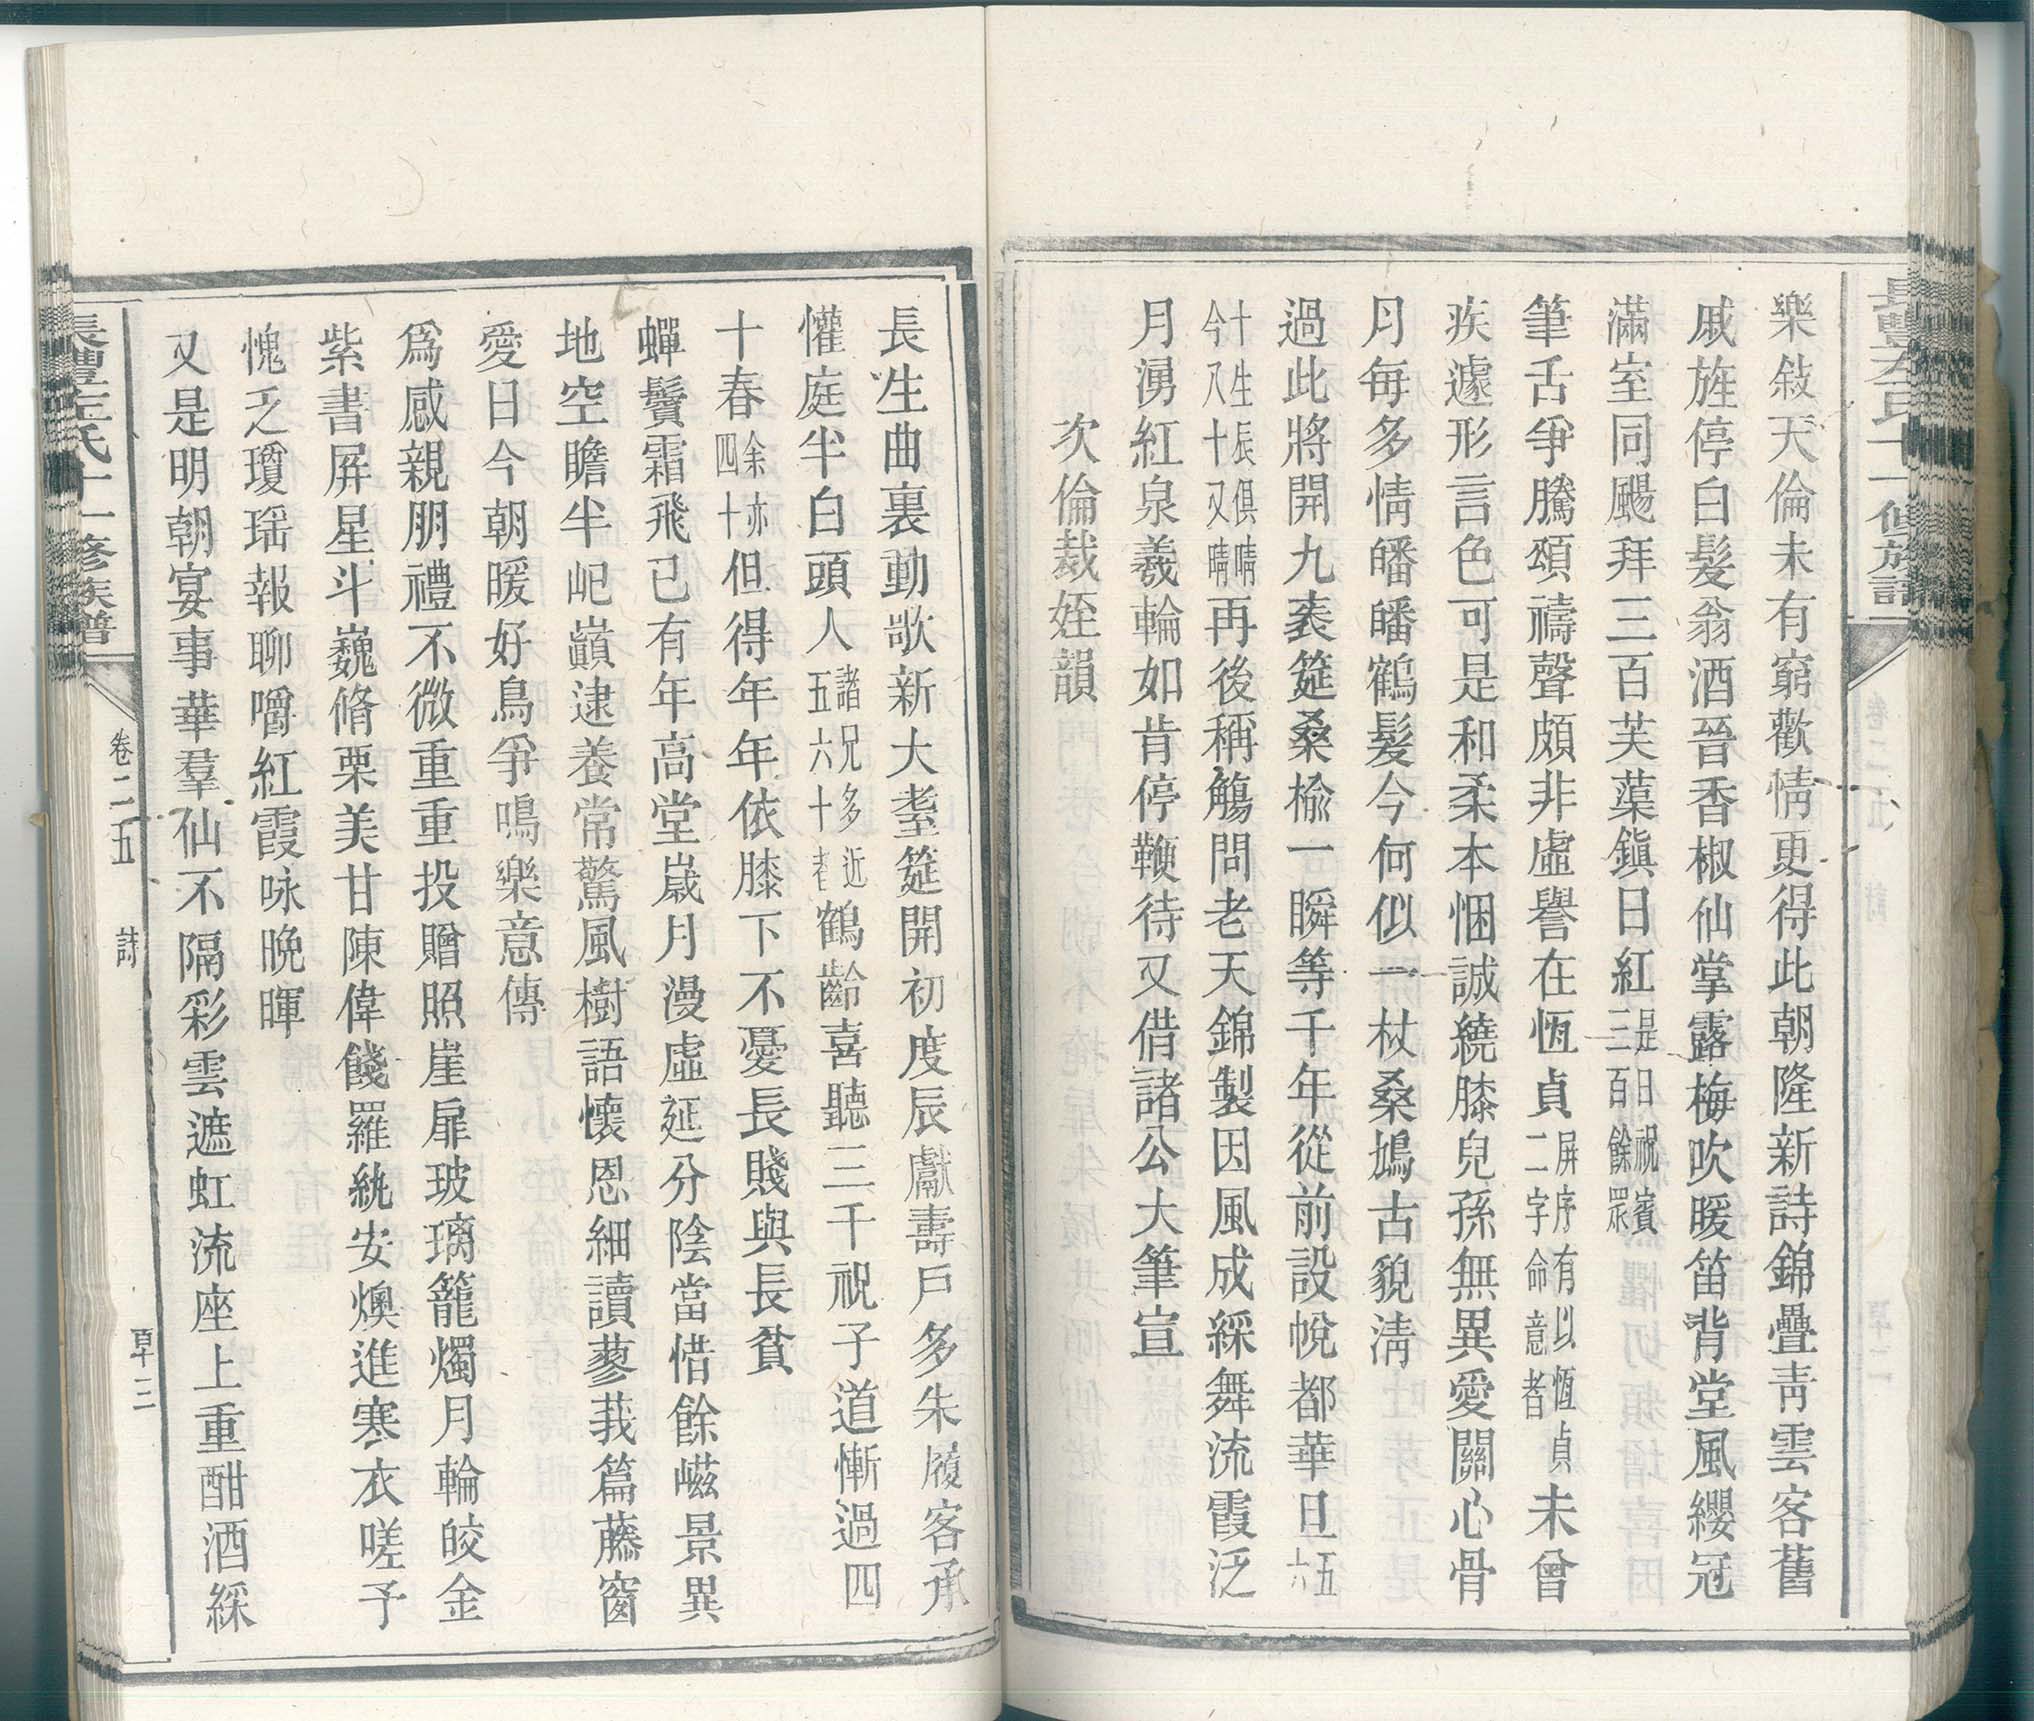 樂敍天倫未有窮歡情更得此朝隆新詩錦疊靑雲客舊
戚旌停白髮翁酒晉香椒仙掌露梅吹暖笛背堂風纓冠
滿室同颺拜三百芙蕖鎭日紅是日祝賓三百餘眾
筆舌爭騰頌禱聲頗非虛譽在恆貞屏序有以恆貞二字命意者未曾
疾遽形言色可是和柔本悃誠繞膝兒孫無異愛關心骨
月每多情皤皤鶴髮今何似一杖桑鳩古貌淸
過此將開九袠筵桑楡一瞬等千年從前設帨都華旦五六
十生辰俱晴今八十又晴再後稱觴問老天錦製因風成綵舞流霞泛
月湧紅泉羲輪如肯停鞭待又借諸公大筆宣
次倫裁姪韻
長生曲裏動歌新大耋筵開初度辰獻壽戶多朱履客承
懽庭半白頭人諸兄多近五六十者鶴齡喜聽三千祝子道慚過四
十春余亦四十但得年年依膝下不憂長賤與長貧
蟬鬢霜飛已有年高堂嵗月漫虛延分陰當惜餘嵫景異
地空瞻半屺巓逮養常驚風樹語懷恩細讀蓼莪篇藤窗
愛日今朝暖好鳥爭鳴樂意傳
爲感親朋禮不微重重投贈照崖扉玻璃籠燭月輪皎金
紫書屛星斗巍脩栗美甘陳偉餞羅紈安燠進寒衣嗟予
愧乏瓊瑶報聊嚼紅霞咏晩暉
又是明朝宴事華羣仙不隔彩雲遮虹流座上重酣酒綵
長豐左氏十一修族譜
卷二五
詩